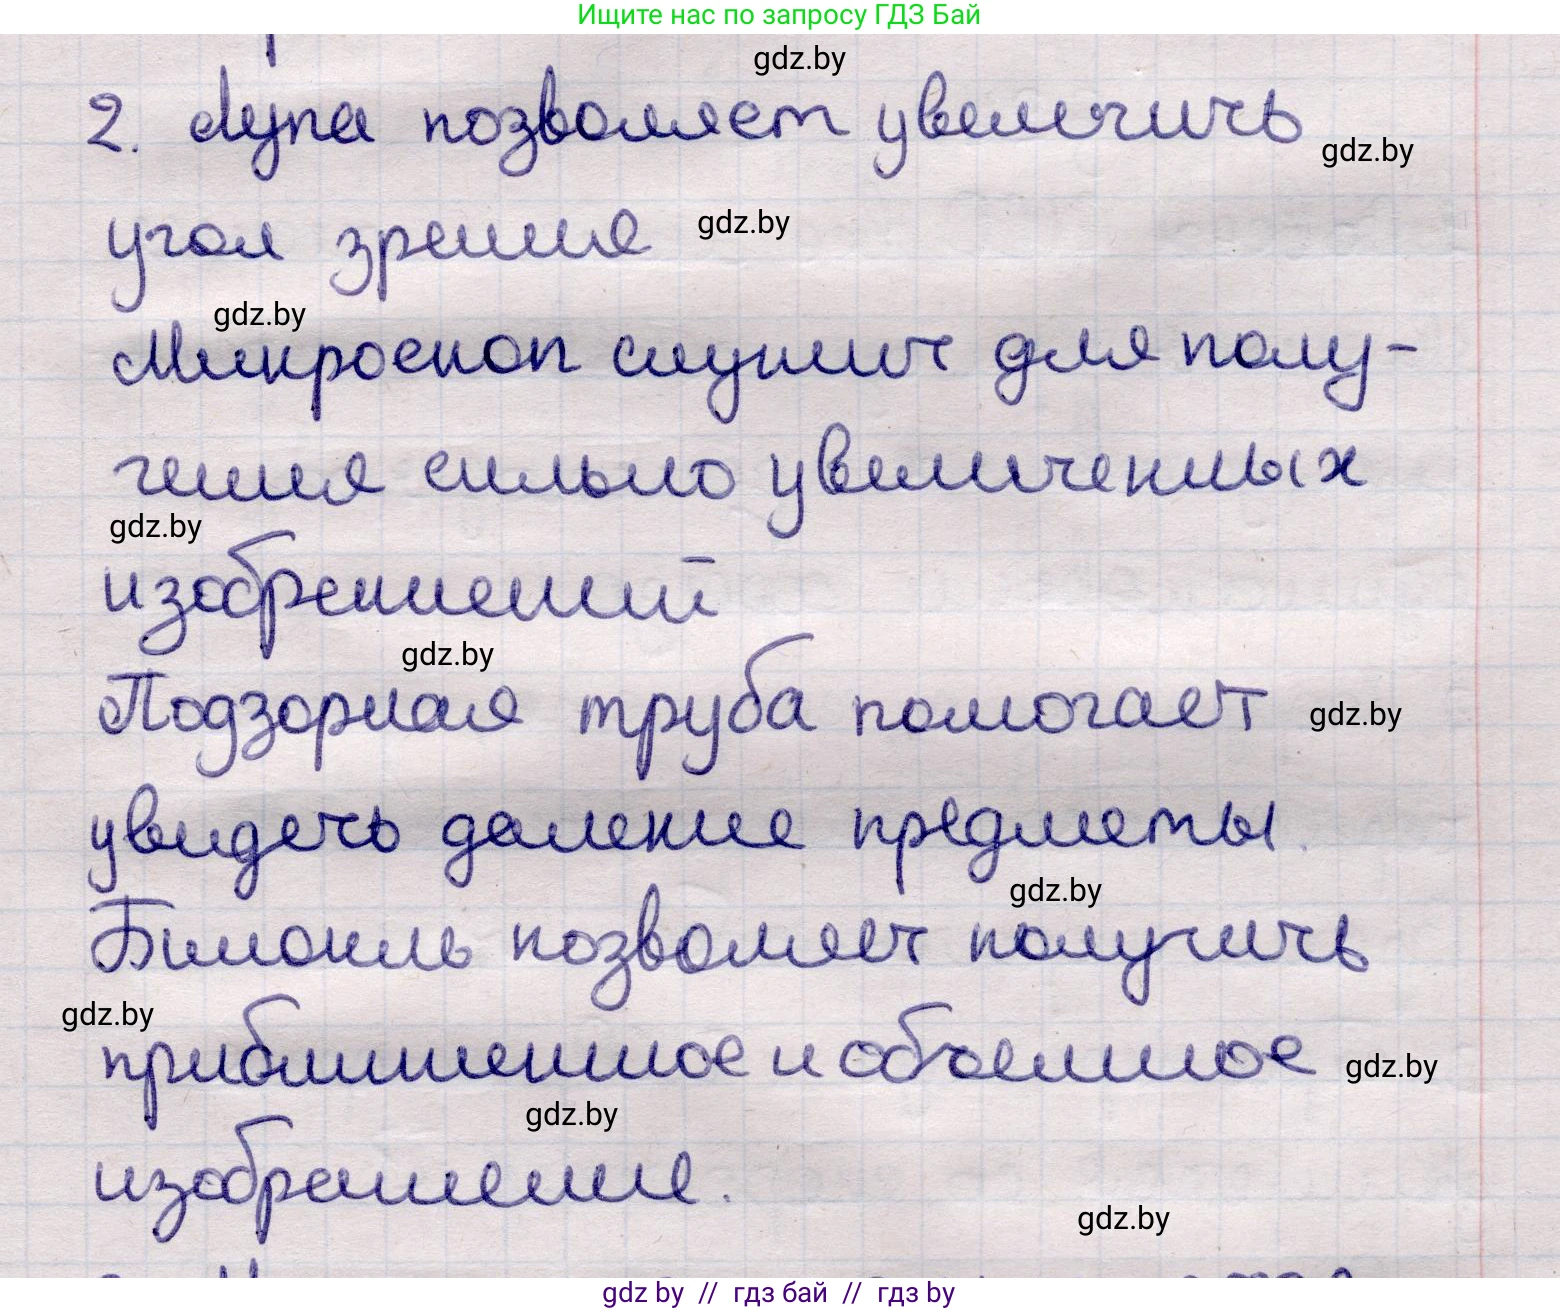 Ищите нас по запросу ГДЗ Бай
gdz.by
2. Лупа позволяет увеличить
gdz.by
угол зрения
gdz.by
gdz.by
Микроскоп служит для полу-
чения сильно увеличенных
gdz.by
изображений
gdz.by
Подзорная труба помогает
gdz.by
увидеть далекие предметы.
gdz.by
Бинокль позволяет получить
gdz.by
приближенное и объемное
gdz.by
gdz.by
изображение.
gdz.by
gdz by // гдз бай // гдз by